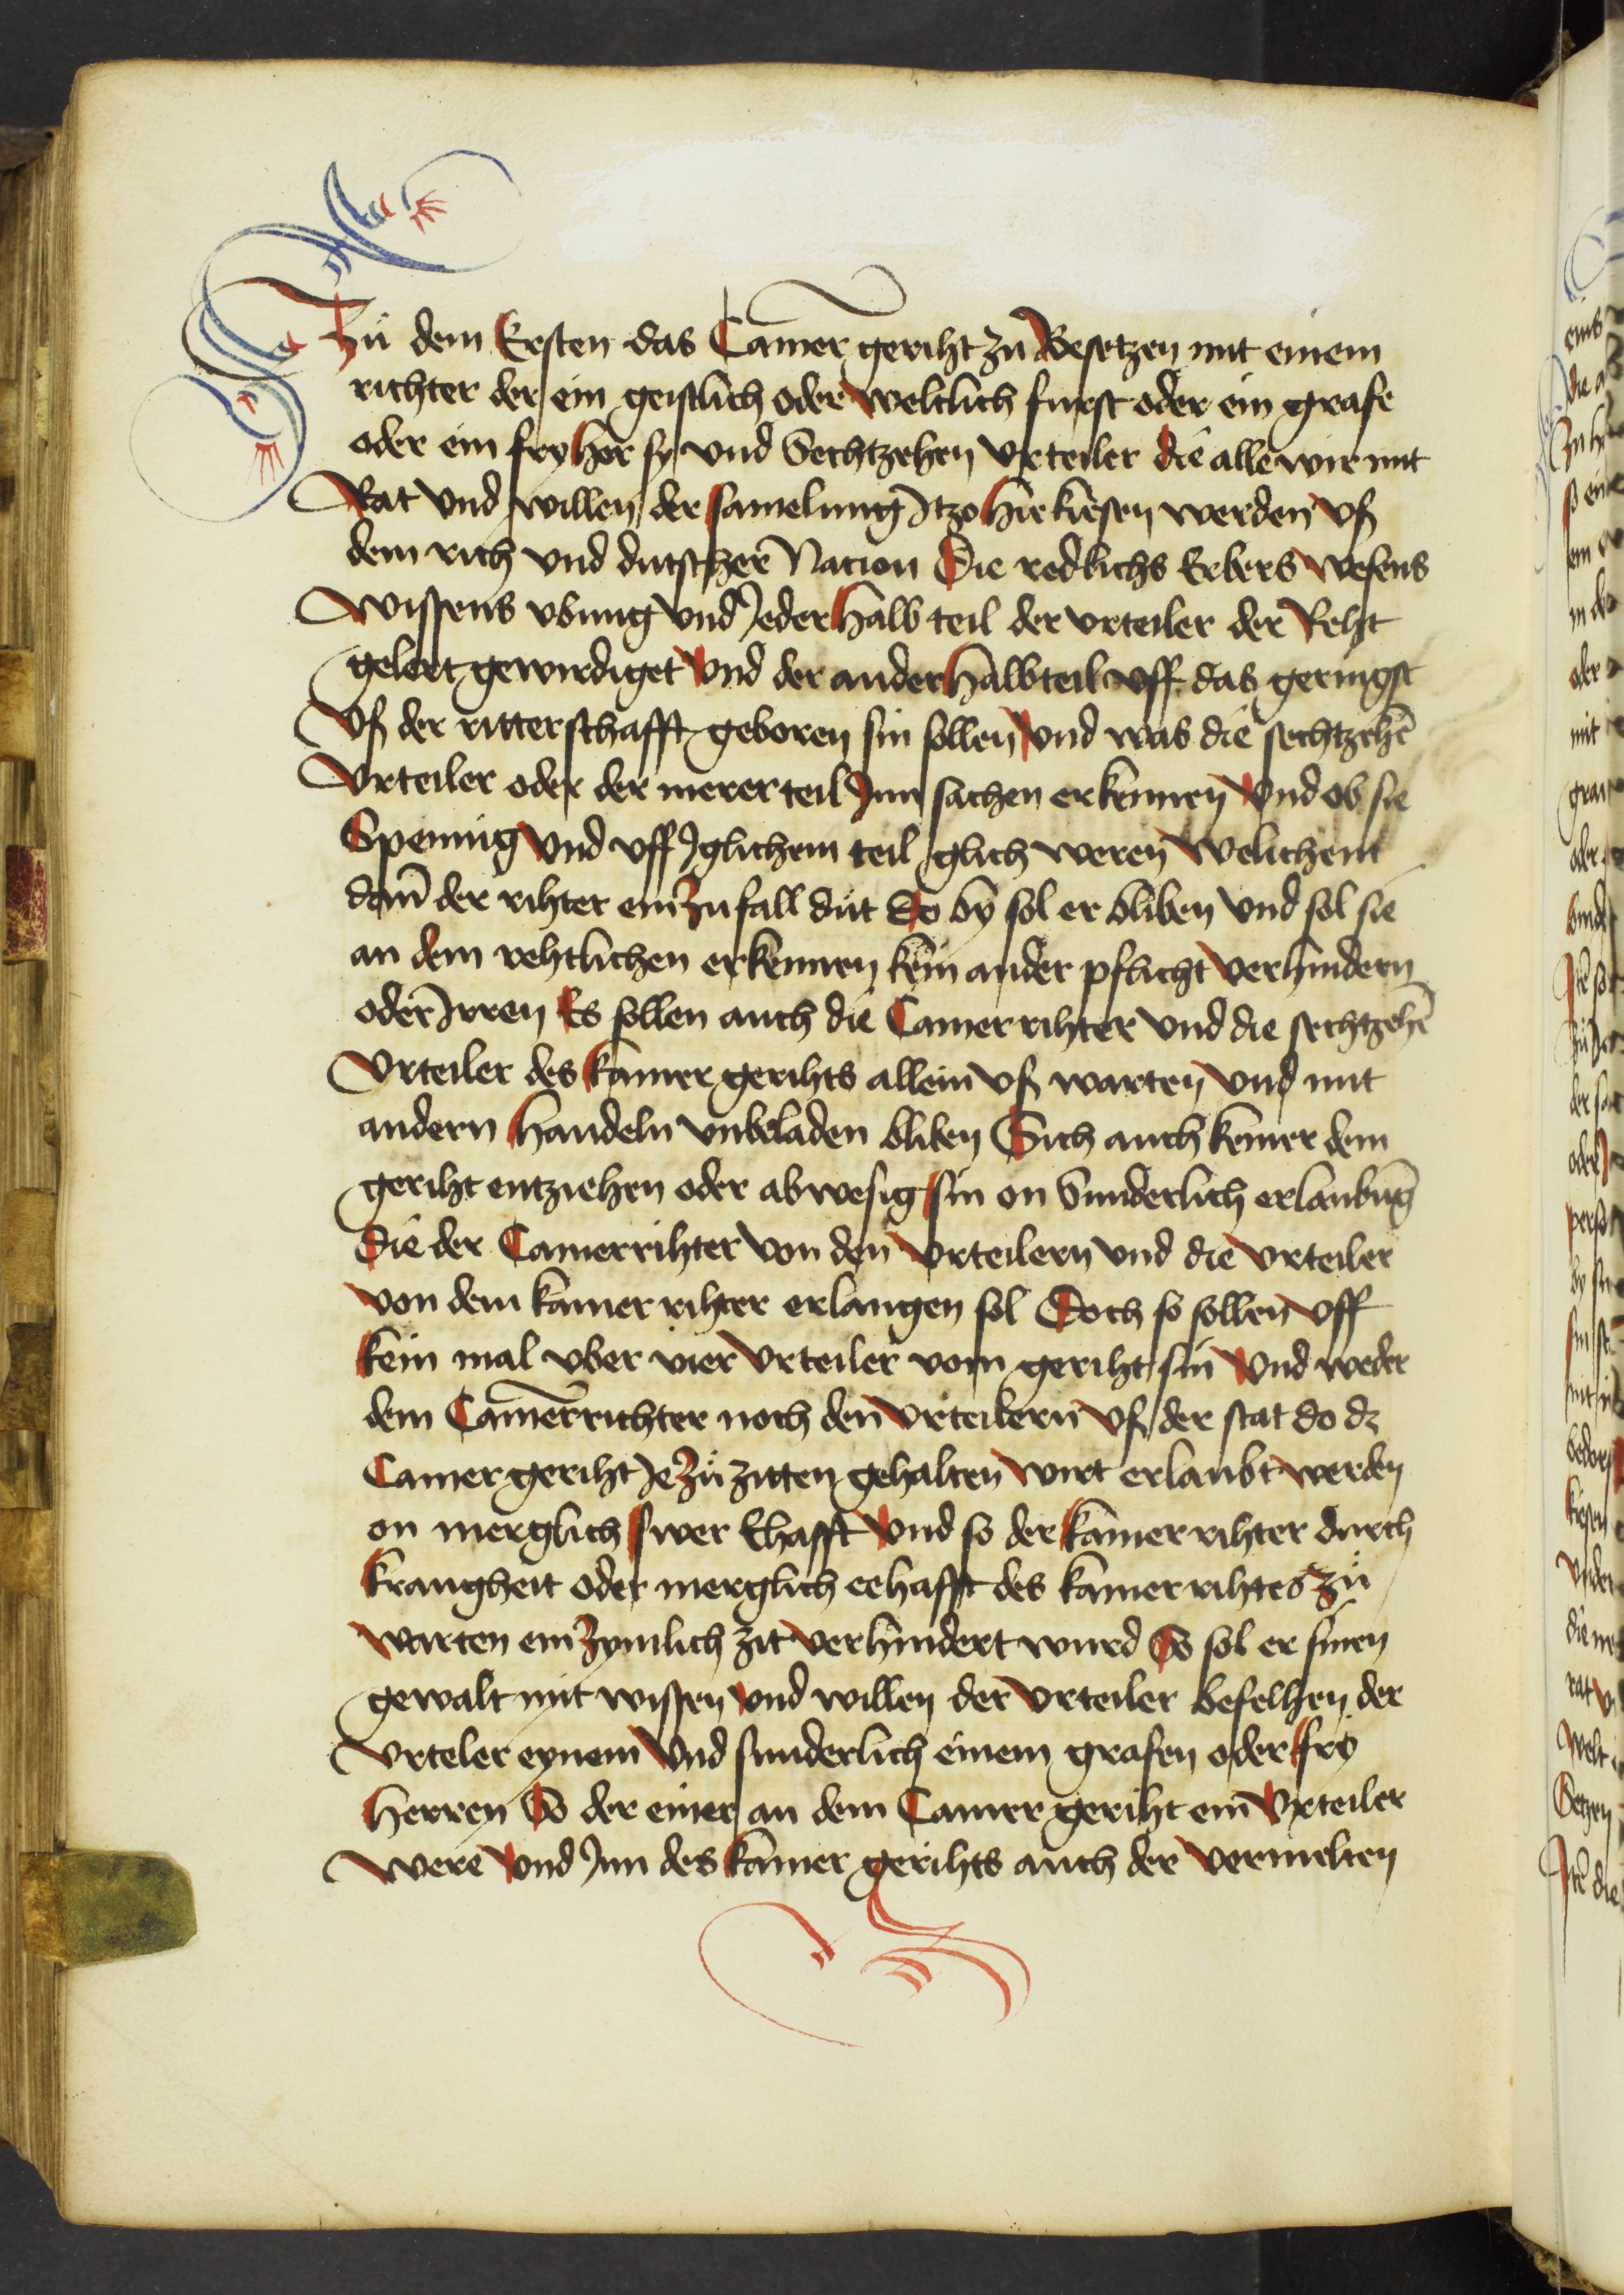 Zů dem Ersten das Camer geriht zů Besetzen mit einem
richter der ein geistlich oder weltlich furst oder ein grafe
oder ein fry her sy vnd Sechtzehen vrteiler die alle wir mit
Rat vnd willen der samelung Itzo hie kiesen werden vß
dem rich vnd dutscher Nacion Die redlichs Erbers wesens
wissens vbung vnd Jeder halb teil der vrteiler der Reht
gelert gewirdiget vnd der ander halbteil vff das geringst
vß der ritterschafft geboren sin sollen vnd was die sechtzehē
vrteiler oder der merer teil Jnn sachen erkennen vnd ob sie
Spennig vnd vff Jglichem teil glich weren welichem
dañ der rihter ein zufall důt Do by sol er bliben vnd sol sie
an dem rehtlichen erkennen kein ander pflicht verhindern
oder Irren Es sollen auch die Camer rihter vnd die sechtzehē
vrteiler des kamer gerihts allein vß warten vnd mit
andern handeln vnbeladen bliben Sich auch keiner dem
geriht entziehen oder abwesig sin on Sunderlich erlaubūg
Die der Camerrihter von den vrteilern vnd die vrteiler
von dem kamer rihter erlangen sol Doch so sollen vff
kein mal vber vier vrteiler vom geriht sin vnd weder
dem Camerrichter noch den vrteilern vß der stat do dz
Camer geriht Je zů zitten gehalten wirt erlaubt werden
on merglich swer Ehafft vnd so der kamer rihter durch
krangheit oder merglich eehafft des kamer rihtes zů
warten ein zymlich zit verhindert wurd So sol er sinen
gewalt mit wissen vnd willen der vrteiler befelhen der
vrteler eynem vnd sunderlich einem grafen oder fry
herren So der einer an dem Camer geriht ein vrteiler
were vnd Jnn des kamer gerihts auch der vermelten